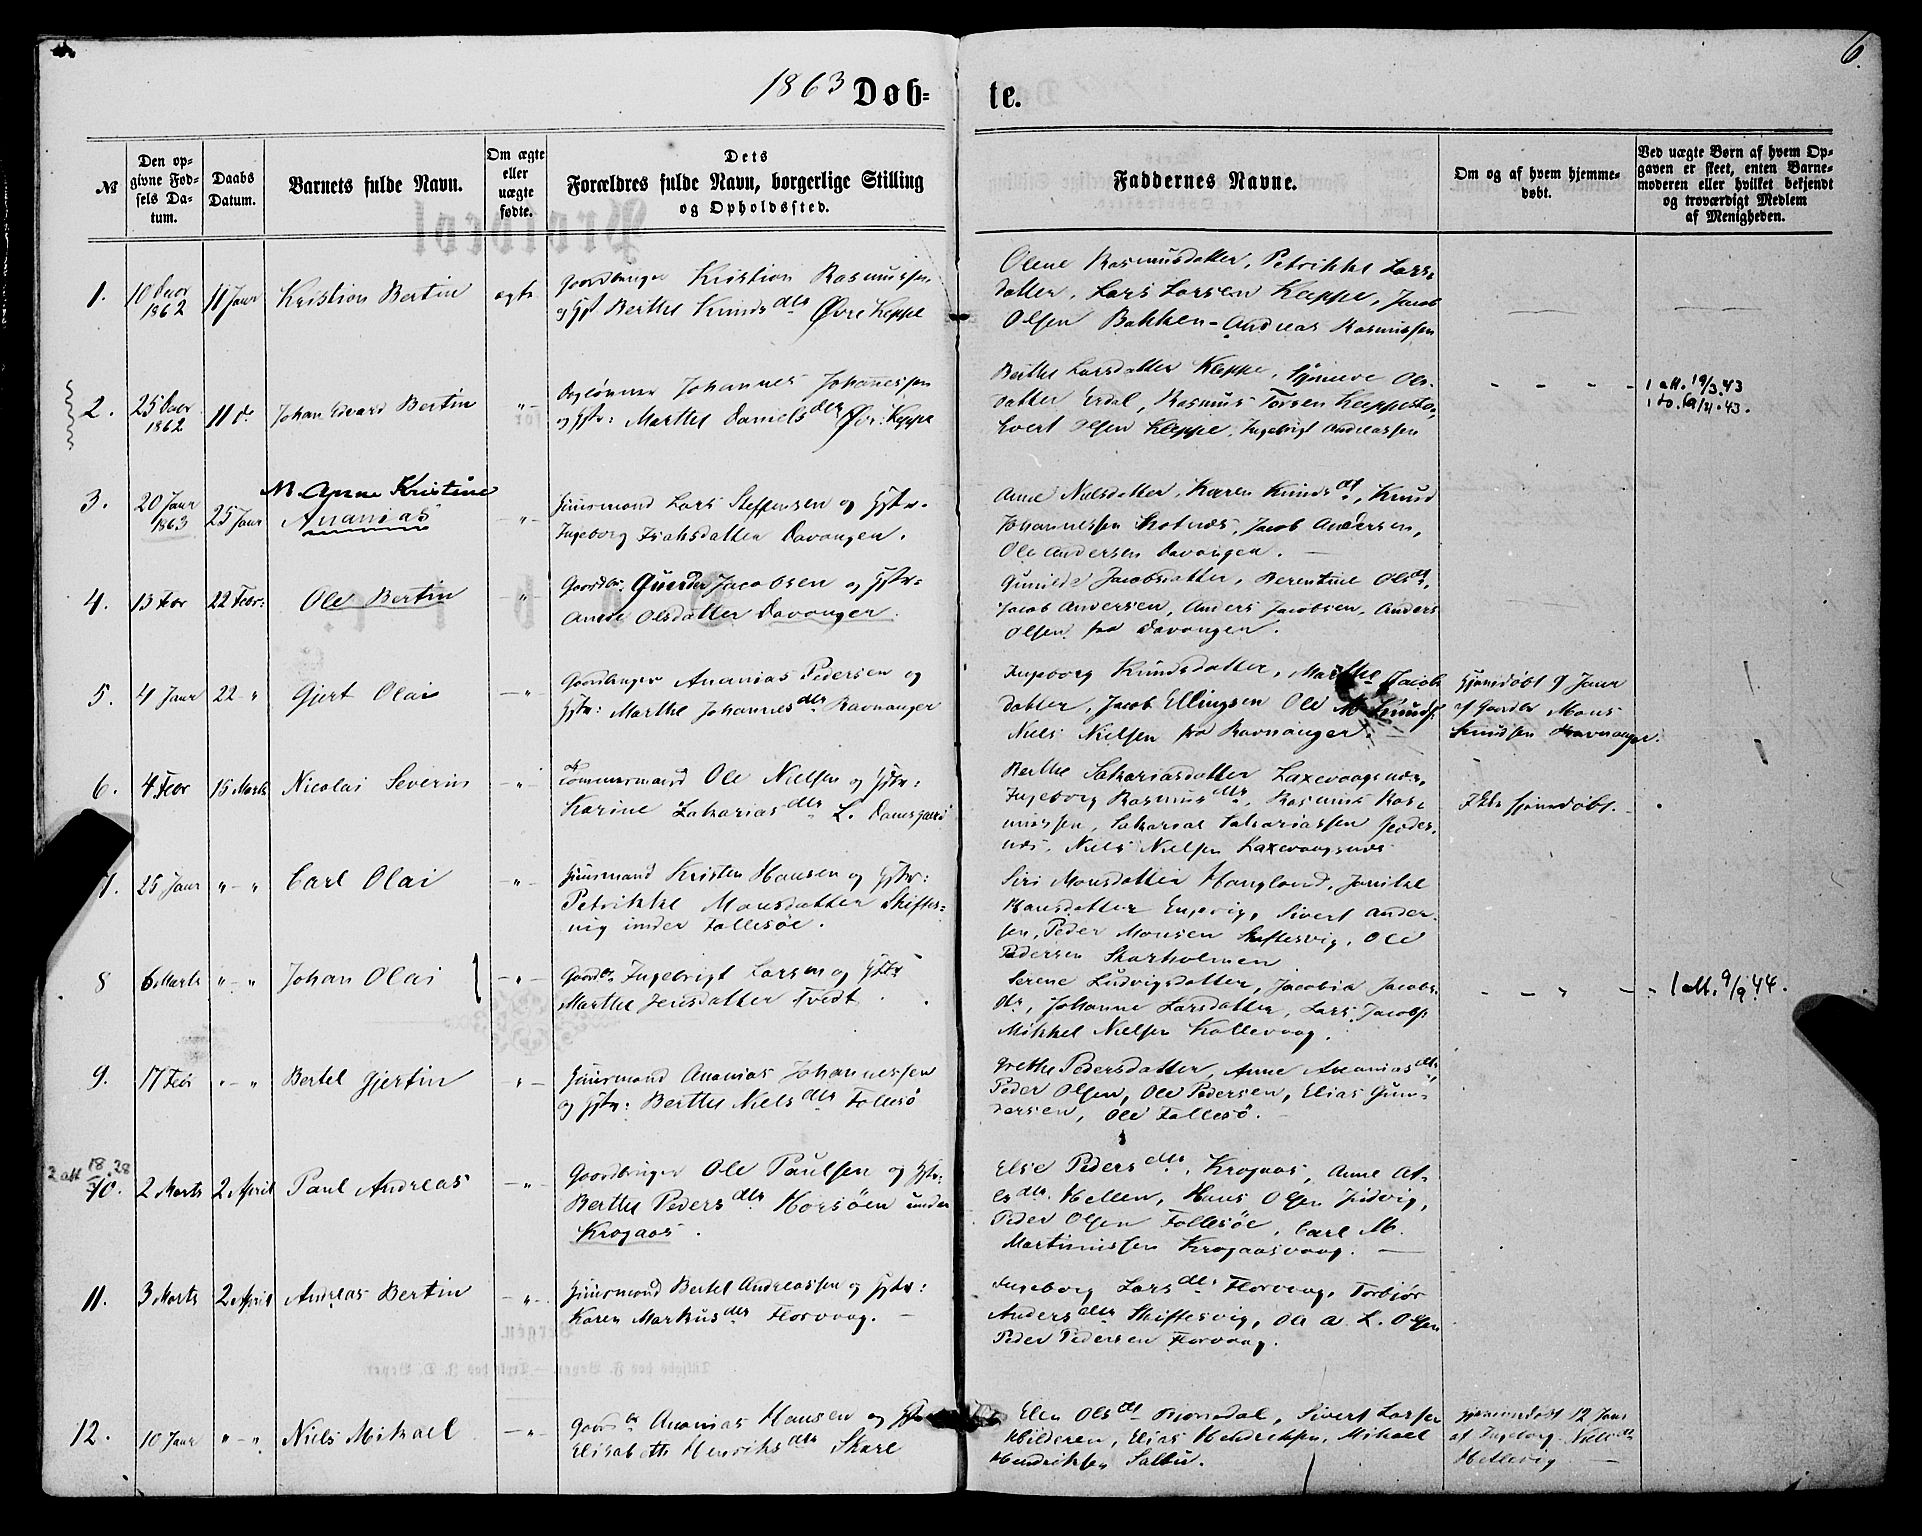 6.
1863 Døb- te.
№
Den op-
givne Fød-
sels Da-
tum.
Daabs
Datum.
Barnets fulde Navn.
Om ægte
eller
uægte
fødte.
Dets
Forældres fulde Navn, borgerlige Stilling
og Opholdssted.
Faddernes Navne.
Om og af hvem hjemme-
døbt.
Ved uægte Børn af hvem Op-
gaven er skeet, enten Barne-
moderen eller hvilket bekjendt
og troværdigt Medlem
af Menigheden.
1.
10
1862
11 Janr
Kristian Bertin
ægte
Gaardbruger Kristian Rasmussen
og Hst Berthe Knuds dtr Øvre Kleppe
Olene Rasmusdatter, Petrikke Lars-
datter, Lars Larsen Kleppe, Jacob
Olsen Bakken - Andreas Rasmussen
2.
25
1862
11 d.
Johan Edvard Bertin
-"-
Johannes Johannessen
og Hstr: Marthe Daniels dtr Øvr: Kleppe
Berthe Larsdatter Kleppe, Ols-
datter Erdal, Rasmus Kleppestø,
Olsen Kleppe, Ingebrigt Andreassen
1 att. 19/3 43
3.
20 Janr
1863
25 Janr
N. Anne Kristine
Ananias
-"-
Huusmand Lars Steffensen og Hstr.
Ingeborg Isaksdatter Davangen.
Anne Nielsdatter, Karen Knuds dt., Knud
Johannessen Skotnes, Jacob Andersen,
Ole Andersen Davangen.
4.
13 Febr
22 Febr:
Ole Bertin
-"-
Gaardbr. Gunder Jacobsen og Hstr:
Anne Olsdatter Davanger.
Gunilde Jacobsdatter, Berentine Ols dt.,
Jacob Andersen, Anders Jacobsen, Anders
Olsen fra Davangen.
5.
4 Janr
22 - "
Gjert Olai
-"
Gaardbruger Ananias Pedersen og
Hstr: Marthe Johannes dtr Ravnanger
Ingeborg Knudsdatter, Marthe Jacobs
datter, Jacob Ellingsen Ole M. Knuds.
Niels Nielsen fra Ravnanger.
Hjemdøbt 9 Janr
af Gaardbr Mons
Knudsen Ravnanger.
6.
4 Febr
15 Marts
Nicolai Severin
-"-
Tømmermand Ole Nielsen og Hstr:
Karine Zakarias dtr L. Damsgaard
Berthe Sakariasdatter Laxevaagsnæs,
Ingeborg Rasmus dtr, Rasmus Ras-
mussen, Sakarias Sakariassen
Niels Nielsen Laxevaagsnæs
hjemdøbt.
7.
25 Janr
"-"
Carl Olai
-"-
Huusmand Kristen Hansen og Hstr:
Petrikke Monsdatter Skiftes-
vig under Follesøe.
Siri Monsdatter Haugland, Janikke
Hansdatter Engevig, Sivert Ander-
sen, Peder Monsen Skiftesvig, Ole
Pedersen Skarholmen
8
6 Marts
"-"
Johan Olai
-"-
Gaardbr. Ingebrigt Larsen og Hstr
Marthe Jensdatter Tvedt.
Serene Ludvigsdatter, Jacobia Jacobs
dtr, Johanne Larsdatter, Lars Jacobs.
Mikkel Nielsen Kollevaag.
1 att. 9/9 44.
9.
17 Febr
"-"
Bertel Gjertin
"-
Huusmand Ananias Johannessen
og Hstr: Berthe Niels dtr Follesø
Grethe Pedersdatter, Anne Ananias dtr,
Peder Olsen, Ole Pedersen, Elias Gun-
dersen, Ole Follesø.
2 att 18 28
10.
2 Marts
2 April
Paul Andreas
-"-
Gaardbruger Ole Paulsen og Hstr:
Berthe Peders dtr Horsøen under
Krogaas.
Else Peders dtr, Krogaas, Anne
dtr. Hellen, Hans Olsen
Peder Olsen Follesøe, Carl M.
Martinussen Krogaasvaag.
11.
3 Marts
2 April
Andreas Bertin
-"-
Huusmand Bertel Andreassen og Hstr:
Karen Markus dtr Florvaag.
Ingeborg Lars dtr Florvaag, Torbjør
Anders dtr Skiftesvig, Ole A. L. Olsen
Peder Pedersen Florvaag.
12.
10 Janr
"-"
Niels Mikael
-"-
Gaardbr Ananias Hansen og Hstr
Elisabeth Henriks dtr Skare
Elen Ols dt Bjørndal, Sivert Larsen
Hilderen, Elias Hendriksen, Mikael
Hendriksen
Hjemmedøbt 12 Janr
af Ingeborg Niels dtr
Hetlevig